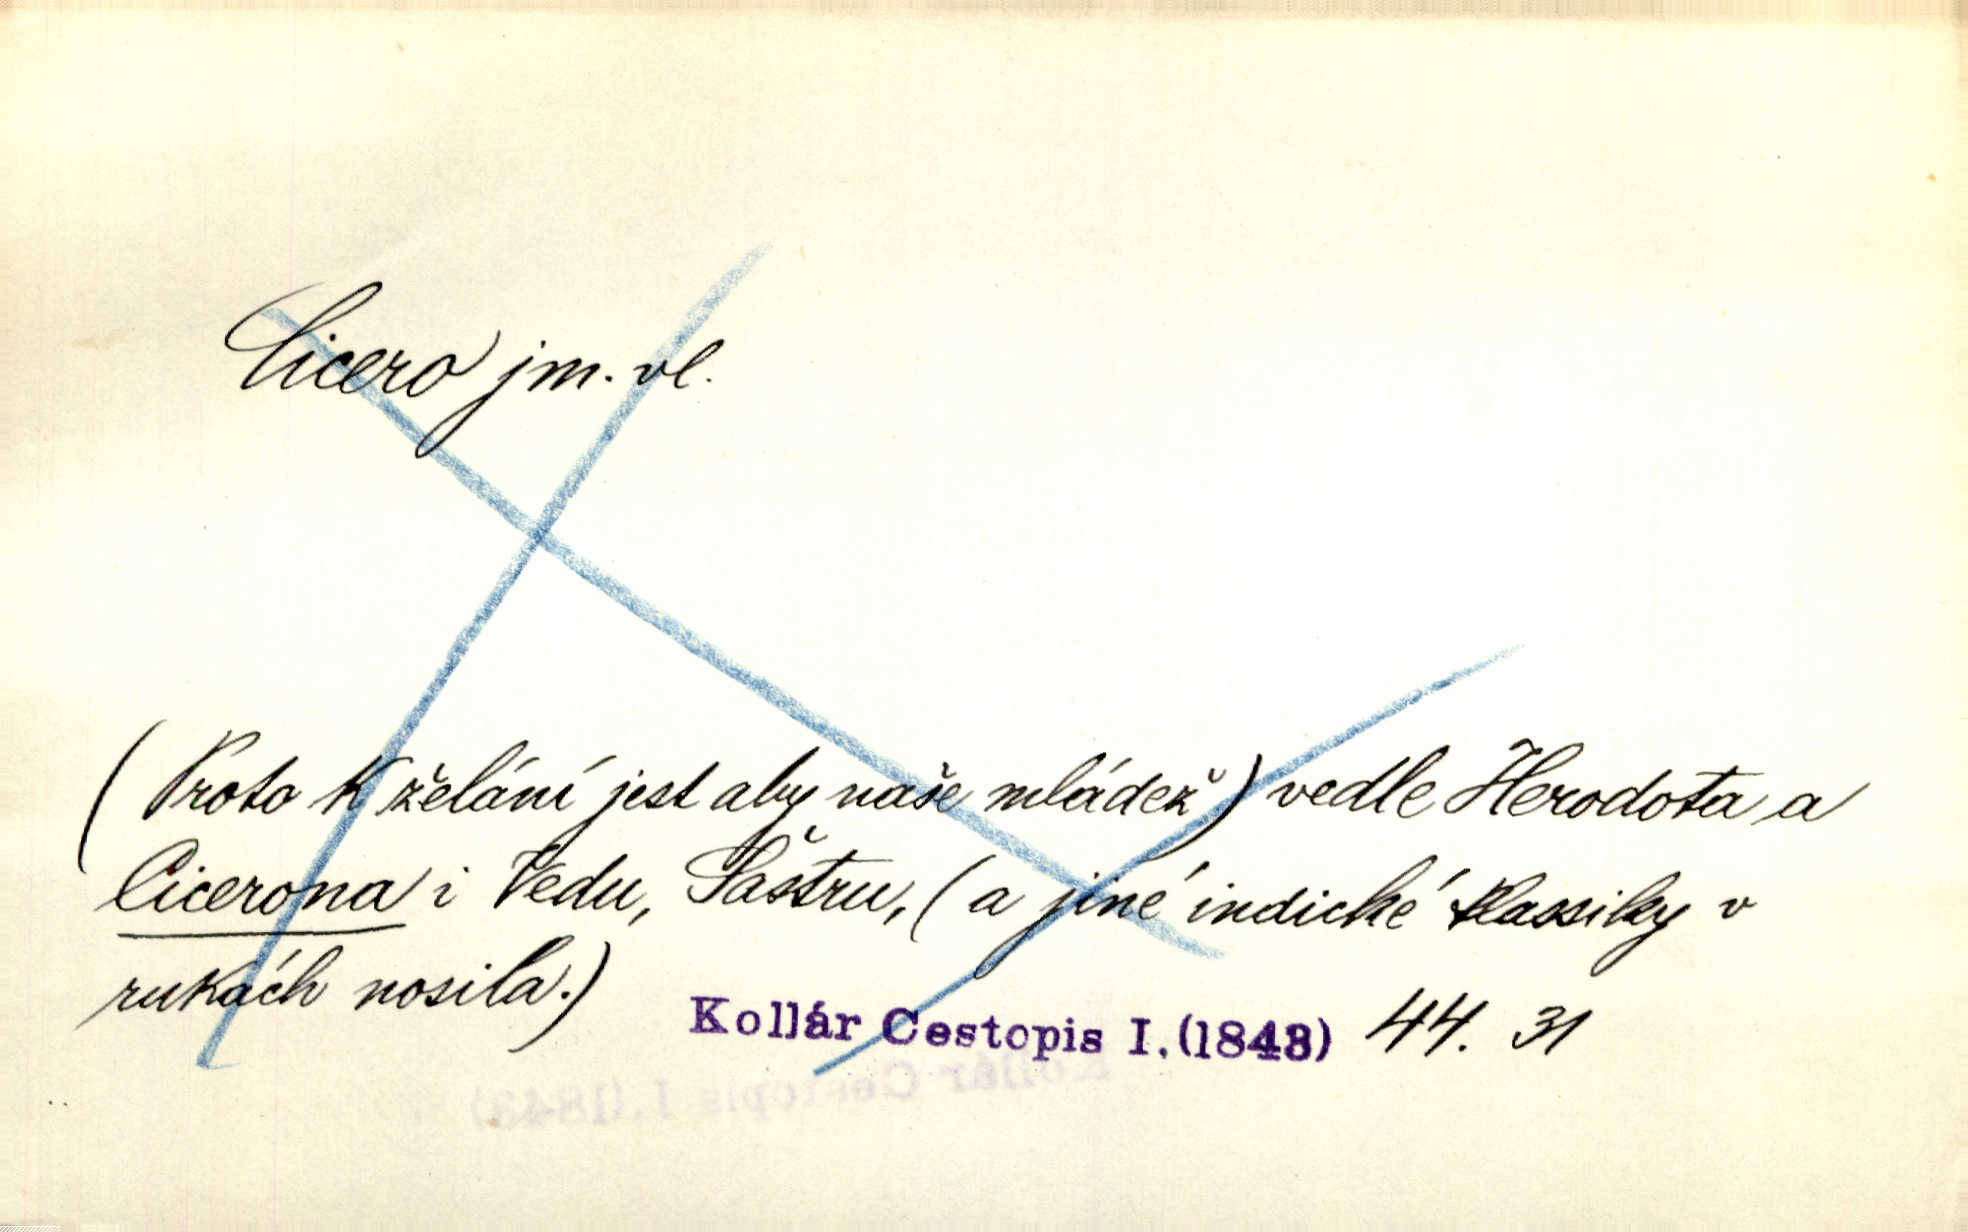 Cicero jm. vl.
(Proto k želání jest aby naše mládež) vedle Herodota a
Cicerona i Vedu, Šaštru, (a jiné indické klassiky v
rukách nosila.)
Kollár Cestopis I.(1843) 44. 31